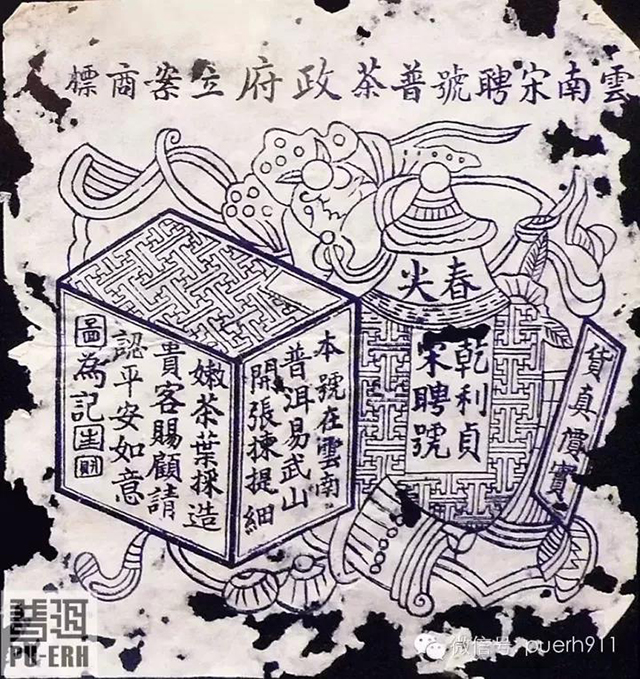 雲南宋聘號普茶政府立案商標
春尖
乾利貞
宋聘號
貨真價實
本號在雲南
普洱易武山
開張揀提細
嫩茶葉採造
貴客賜顧請
認平安如意
圖為記生財
普洱
PU-ERH
微信号: puerh911